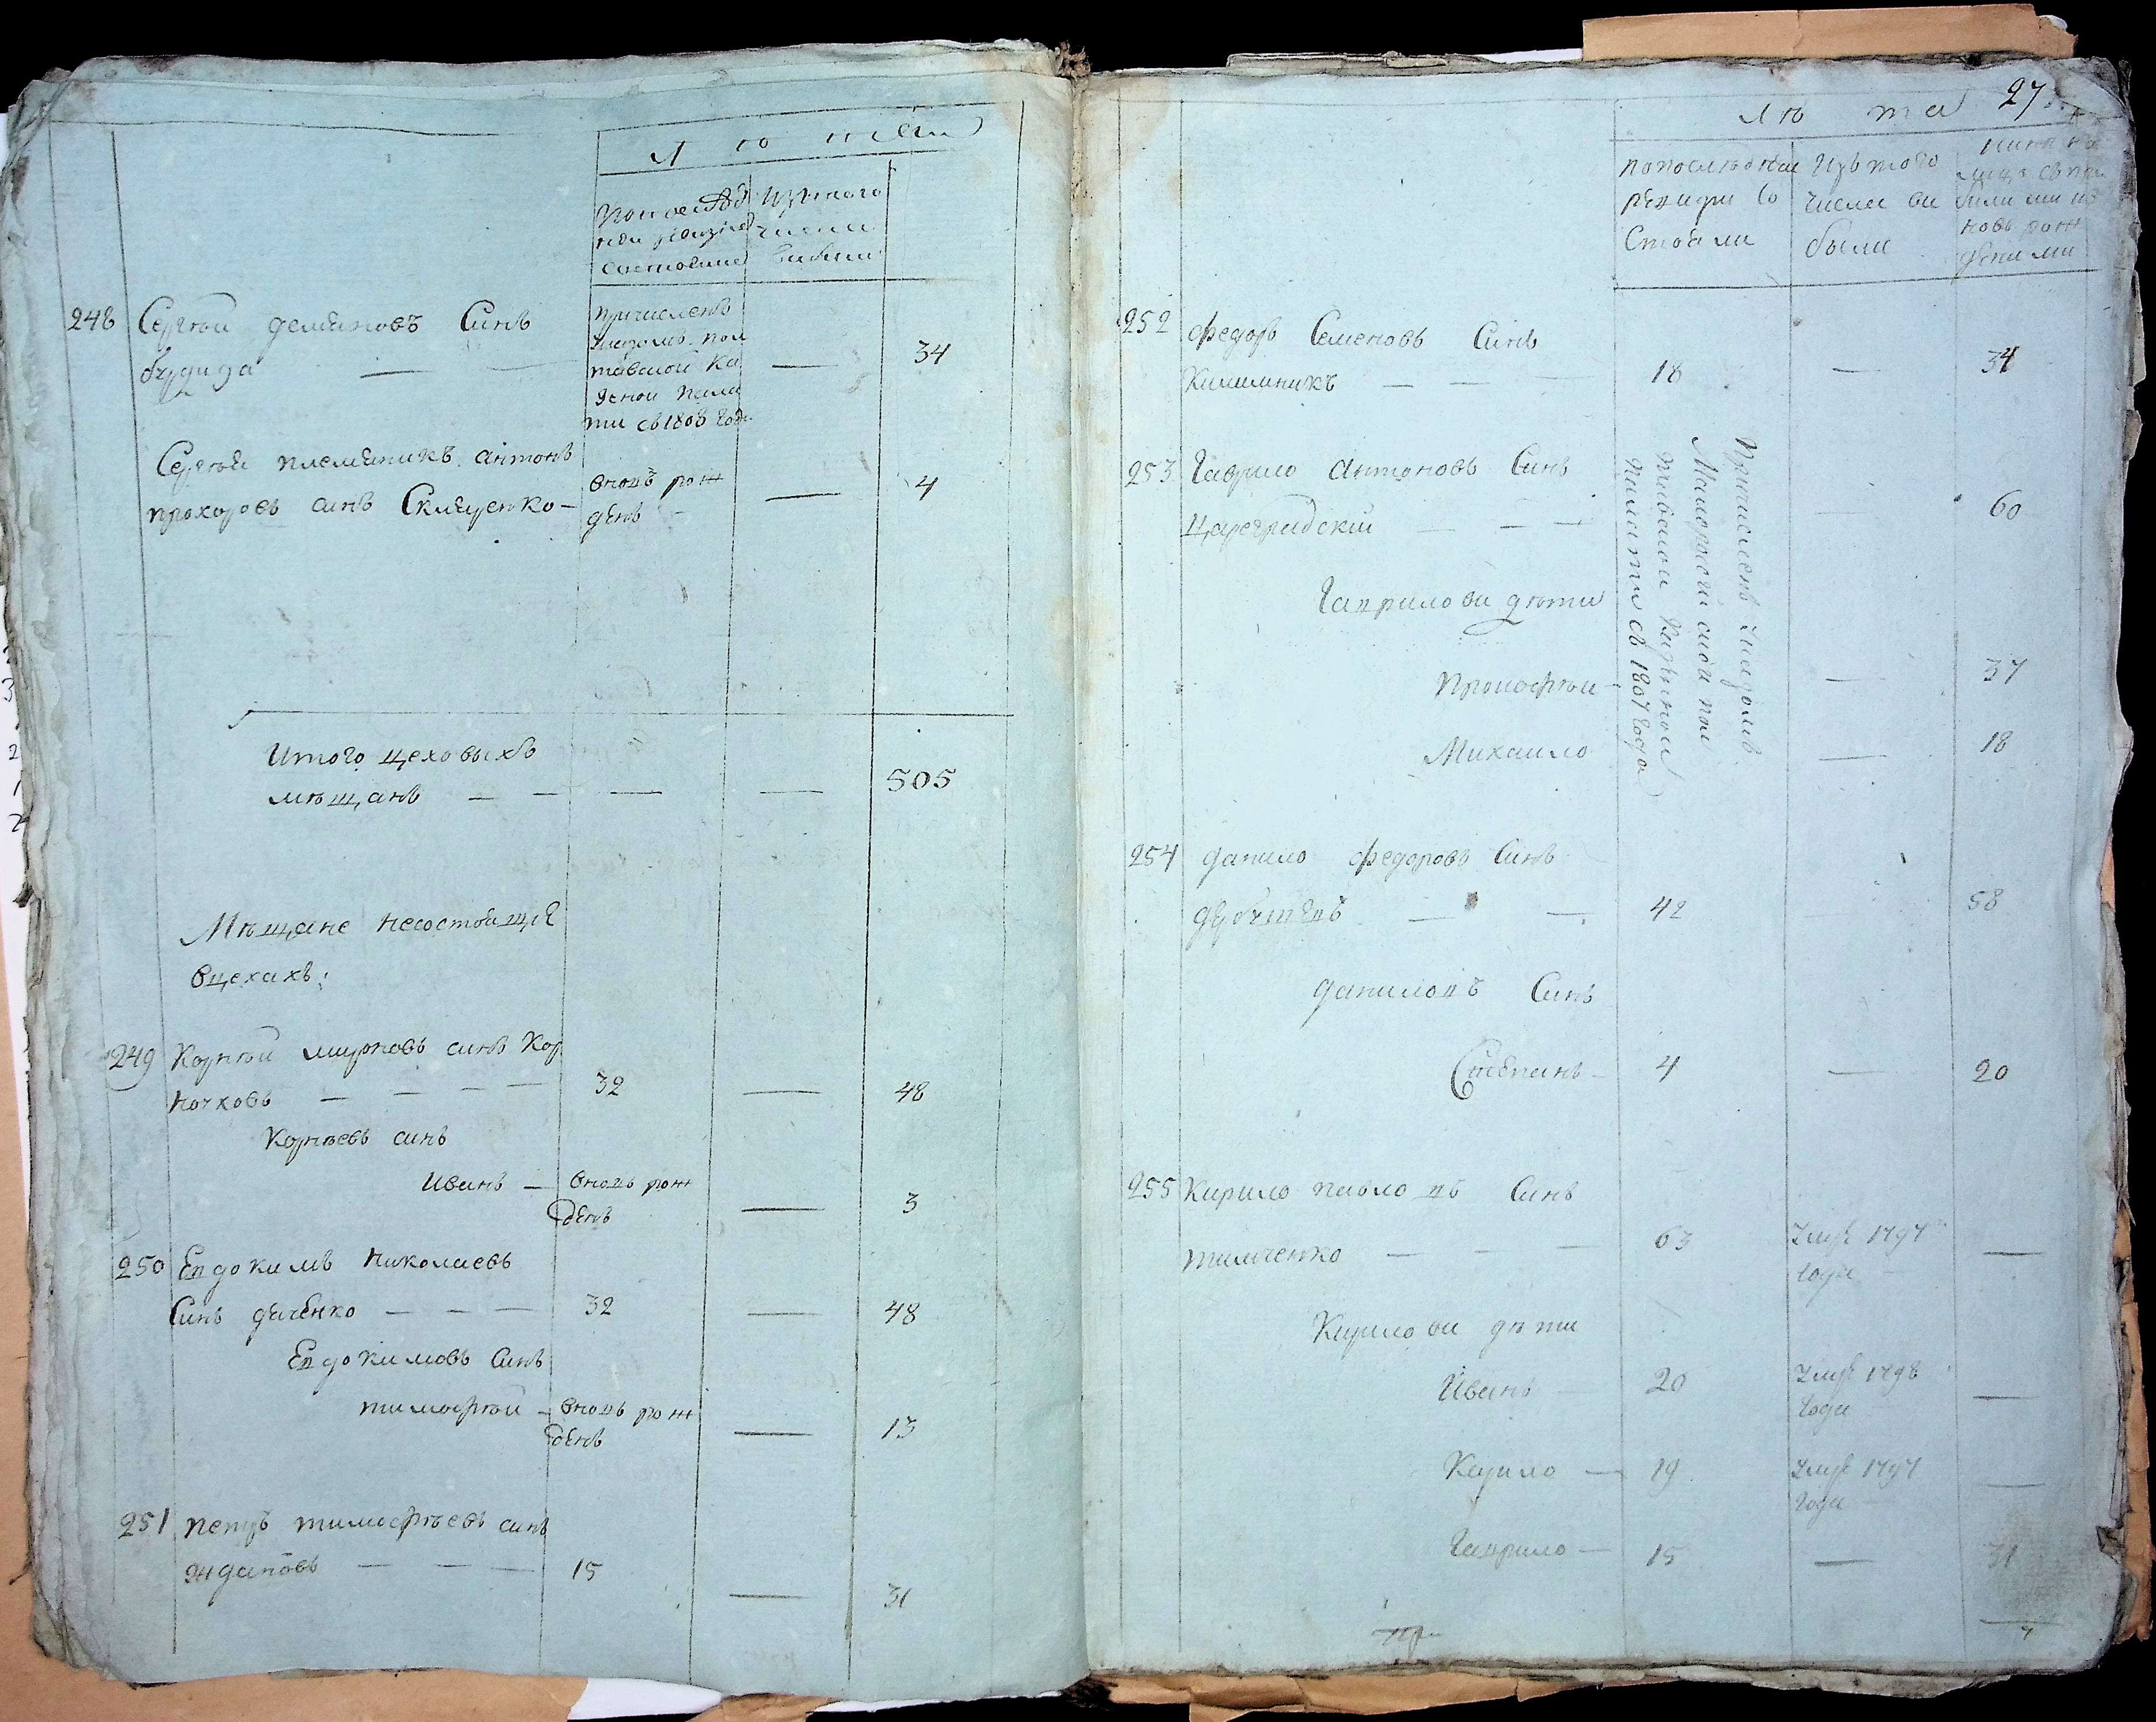 Лѣта
По послѣд
ней ревизіи
состояли
Изъ того
числа
выбыли
248 Сергѣй Демяновъ Синъ
34
Причисленъ
указомъ Пол
тавской Ка
зенной Пала
ти съ 1808 года
Сергѣя племяникъ Антонъ
Прохоровъ синъ Скляренко
вновъ рож
денъ
4
Итого цеховыхъ
мѣщанъ
505
Мѣщане несостоящіе
вцехахъ:
249 Корнѣй Мироновъ синъ Кор
ночковъ
32
48
Корнѣевъ синъ
Иванъ вновъ рож
денъ
3
250 Евдокимъ Николаевъ
Синъ Дяченко
32
48
Евдокимовъ Синъ
Тимофѣй вновъ рож
денъ
13
251 Петръ Тимофѣевъ синъ
Ждановъ
15
31
27
Лѣта
По послѣдней
ревизіи со
стояли
Изъ того
числа вы
были
Нинѣ на
лицо съ при
были ми и
новь рож
денными
252 Федоръ Семеновъ Синъ
Килимникъ
18
34
253 Гаврило Антоновъ Синъ
Цареградскій
60
Причисленъ указомъ
Малоросійской Пол
тавской Казенной
Палати съ 1807 года
Гавриловы дѣти
Прокофѣй
37
Михайло
18
254 Данило Федоровъ Синъ
42
58
Даниловъ Синъ
Степанъ
4
20
255 Кирило Павловъ Синъ
Тимченко
63
Умре 1797
года
Кирилови дѣти
Иванъ
20
Умре 1798
года
Кирило
19
Умре 1797
года
Гаврило
15
31